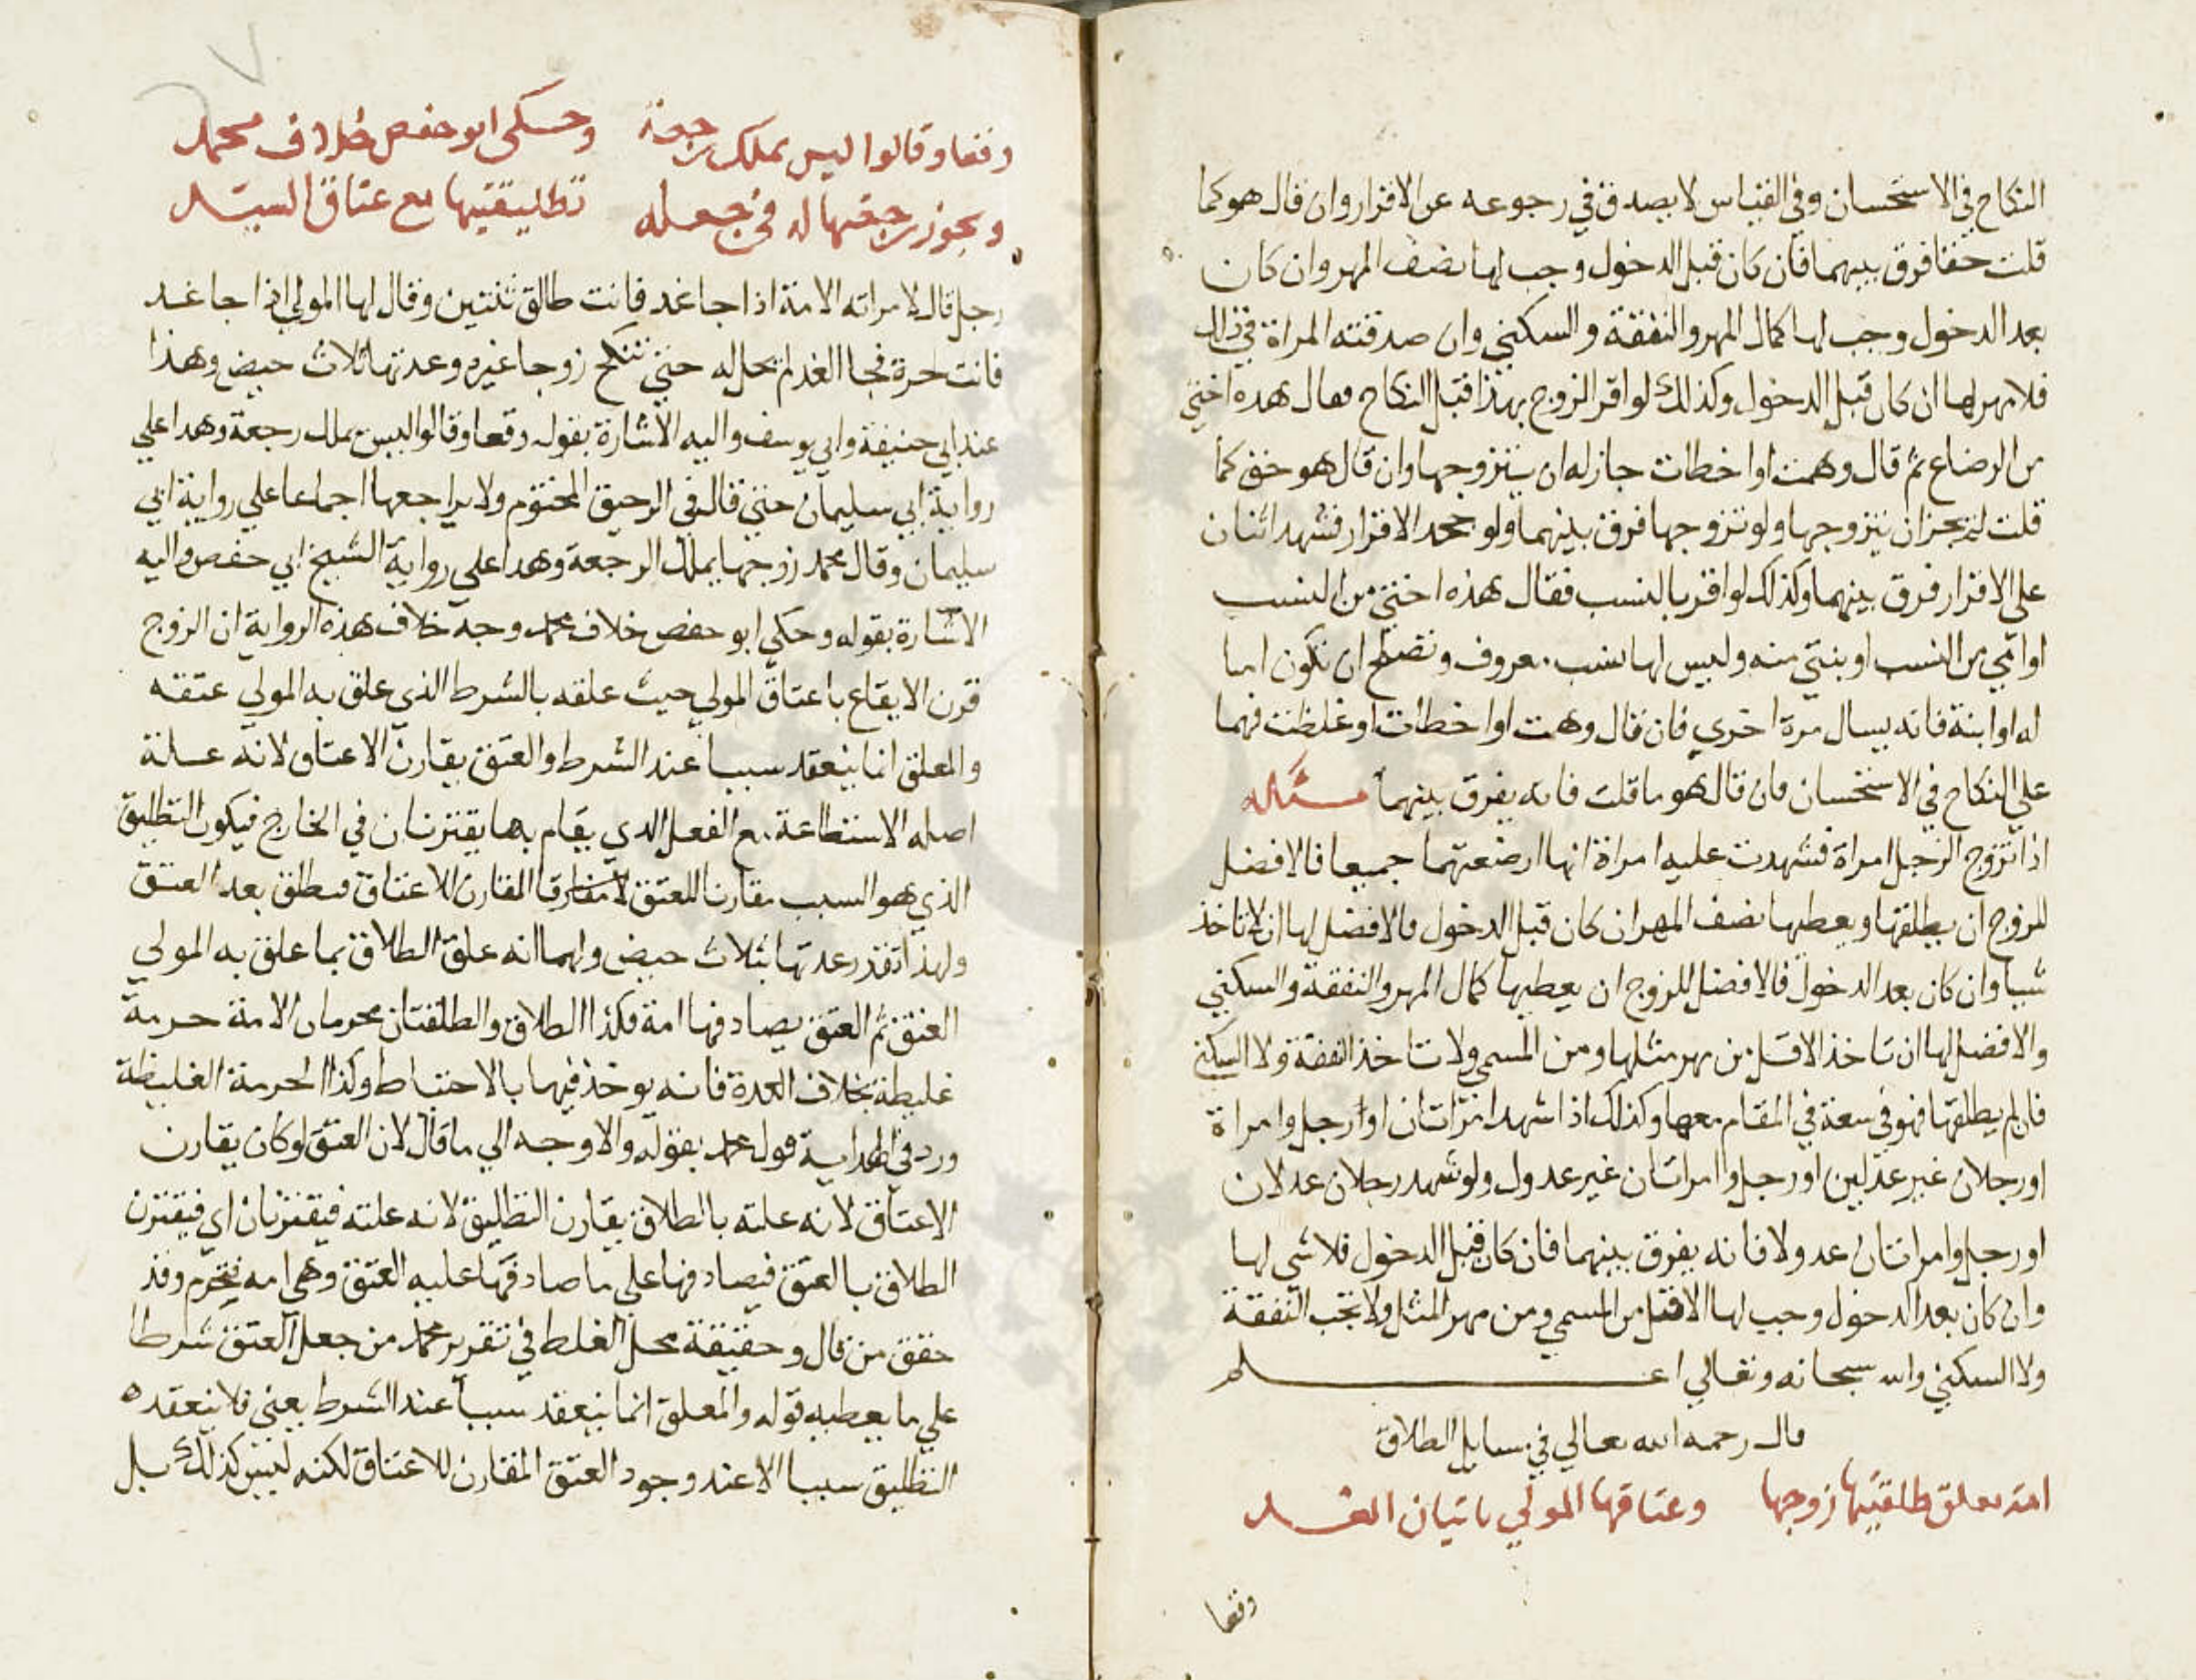 النكاح في الاستحسان وفي القياس لا يصدق في رجوعه عن الاقرار وان قال هو كما
قلت حقا فرق بينهما فان كان قبل الدخول وجب لها نصف المهر وان كان
بعد الدخول وجب لها كمال المهر والنفقة والسكني وان صدقته المراة في ذلك
فلا مهر لها ان كان قبل الدخول وكذلك لو اقر الزوج بهذا قبل النكاح فقال هده اختي
من الرضاع ثم قال وهمت او اخطات جاز له ان يتزوجها وان قال هو حق كما
قلت لم يجز ان يتزوجها ولو تزوجها فرق بينهما ولو جحد الاقرار فشهد اثنان
علي الاقرار فرق بينهما وكذلك لو اقر بالنسب فقال هذه اختي من النسب
او امي من النسب او بنتي منه وليس لها نسب معروف وتصلح ان تكون اما
له او ابنة فانه يسال مرة اخري فان قال وهمت او اخطات او غلظت فهما
علي النكاح في الاستحسان فان قال هو ما قلت فانه يفرق بينهما مسئله
اذا تزوج الرجل امراة فشهدت عليه امراة انها ارضعتهما جميعا فالافضل
للزوج ان يطلقها ويعطيها نصف المهر ان كان قبل الدخول فالافضل لها ان لا تاخذ
شيا وان كان بعد الدخول فالافضل للزوج ان يعطيها كمال المهر والنفقة والسكني
والافضل لها ان تاخذ الاقل من مهر مثلها ومن المسمي ولا تاخذ النفقة ولا السكني
فان لم يطلقها فهو في سعة في المقام معها وكذلك اذا شهد امراتان او رجل وامراة
او رجلان غير عدلين او رجل وامراتان غير عدول ولو شهد رجلان عدلان
او رجل وامراتان عدولا فانه يفرق بينهما فان كان قبل الدخول فلا شي لها
وان كان بعد الدخول وجب لها الاقل من المسمي ومن مهر المثل ولا تجب النفقة
ولا السكني والله سبحانه وتعالي اعلم
قال رحمه الله تعالي في مسايل الطلاق
امة معلق طلقتيها زوجها وعتاقها المولي باتيان الغد
وقعا
وقعا وقالوا ليس يملك رجعة وحكي ابو حفص خلاف محمد
ويجوز رجعتها له في جعله تطليقتيها مع عتاق السيد
رجل قال لامراته الامة اذا جا غد فانت طالق ثنتين وقال لها المولي اذا جا غد
فانت حرة فجا الغد لم تحل له حتي تنكح زوجا غيره وعدتها ثلاث حيض وهذا
عند ابي حنيفة وابي يوسف واليه الاشارة بقوله وقعا وقالوا ليس يملك رجعة وهدا علي
رواية ابي سليمان حتي قال في الرحيق المختوم ولا يراجعها اجماعا علي رواية ابي
سليمان وقال محمد زوجها يملك الرجعة وهدا علي رواية الشيخ ابي حفص واليه
الاشارة بقوله وحكي ابو حفص خلاف محمد وجه خلاف هذه الرواية ان الزوج
قرن الايقاع باعتاق المولي حيث علقه بالشرط الذي علق به المولي عتقه
والمعلق انما ينعقد سببا عند الشرط والعتق يقارن الاعتاق لانه علة
اصله الاستطاعة مع الفعل الدي يقام بها يقترنان في الخارج فيكون التطليق
الذي هو السبب مقارنا للعتق المقارن للاعتاق فتطلق بعد العتق
ولهذا تقدر عدتها بثلاث حيض ولهما انه علق الطلاق بما علق به المولي
العتق ثم العتق يصادفها امة فكذا الطلاق والطلقتان محرمان الامة حرمة
غليظة بخلاف العدة فانه يوخذ فيها بالاحتياط وكذا الحرمة الغليظة
ورد في الهداية قول محمد بقوله والاوجه الي ما قال لان العتق لو كان يقارن
الاعتاق لانه علته بالطلاق يقارن التطليق لانه علته فيقترنان اي فيقترن
الطلاق بالعتق فيصادفها علي ما صادفها عليه العتق وهي امه فتحرم وقد
حقق من قال وحقيقة محل الغلط في تقرير محمد من جعل العتق شرطا
علي ما يعطيه قوله والمعلق انما ينعقد سببا عند الشرط يعني فلا ينعقد ه
التطليق سببا الا عند وجود العتق المقارن للاعتاق لكنه ليس كذلك بل